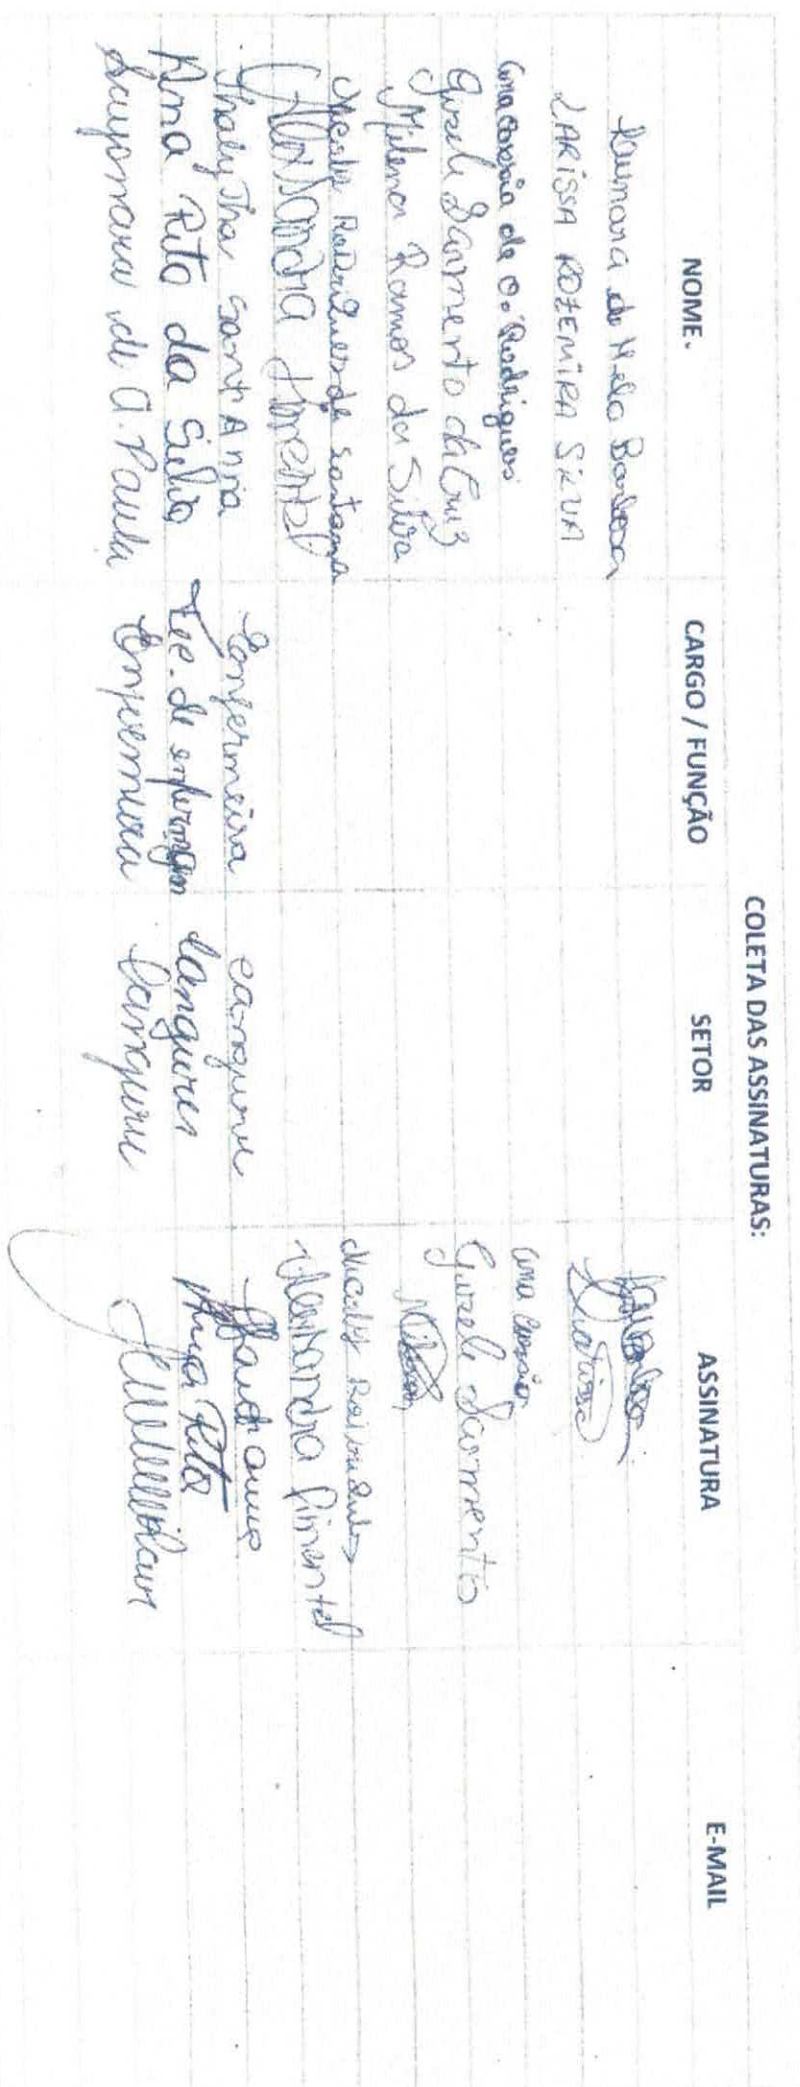 COLETA DAS ASSINATURAS:
NOME. CARGO / FUNÇÃO SETOR ASSINATURA E-MAIL
de Melo Barbosa
LARISSA ROZEMIRA SILVA Larissa
Ana Cassia de O. Rodrigues Ana Cassia
Gisele Sarmento da Cruz Gisele Sarmento
Milena Ramos da Silva
de Santana
Alessandra Pimentel Alessandra Pimentel
Thalytha Sant Anna Enfermeira canguru
Ana Rita da Silva Tec. de enfermagem Canguru Ana Rita
Sayonara de A. Paula Enfermeira Canguru